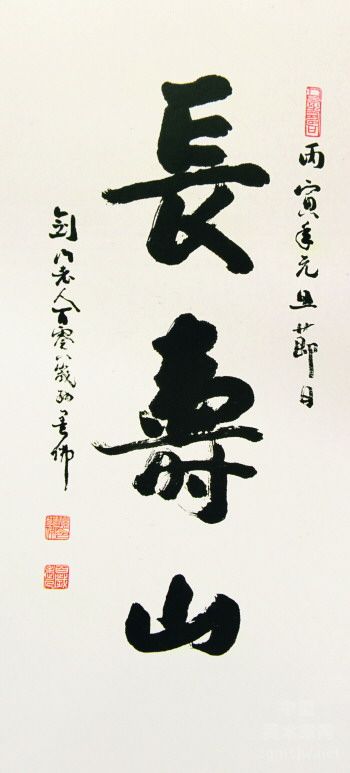 丙寅年元旦節日
長壽山
劍門老人百零八歲孫墨佛